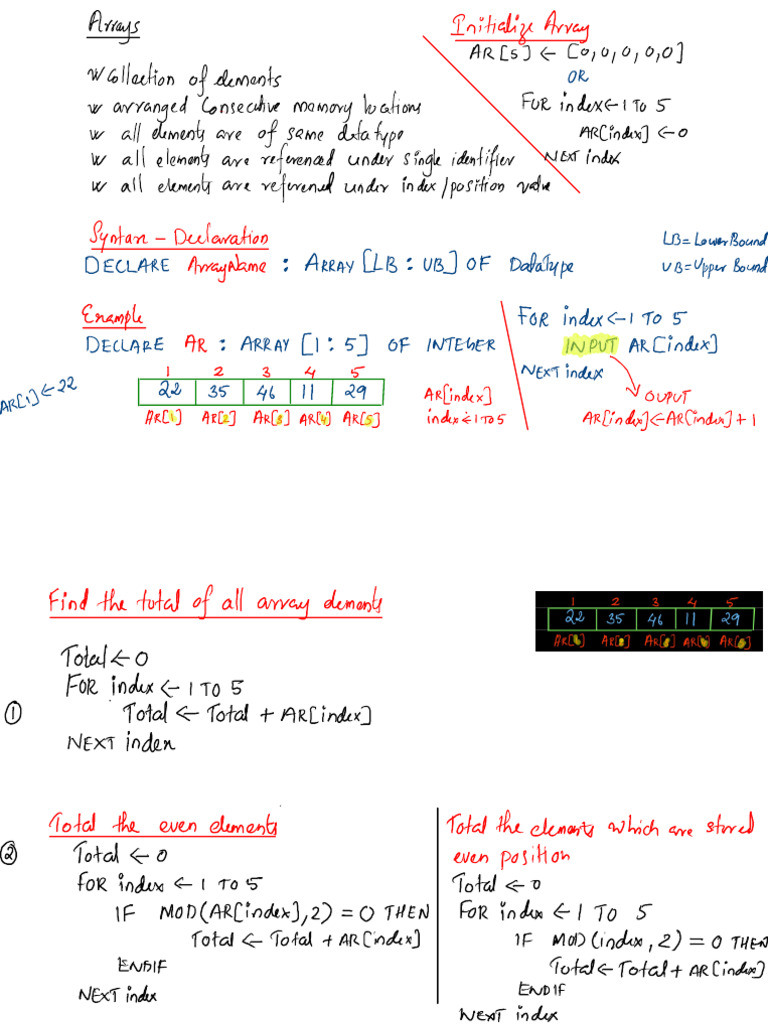 Arrays
w Collection of elements
w arranged Consecutive memory locations
w all elements are of same datatype
w all elements are referenced under single identifier
w all elements are referened under index/position value
Initialize Array
AR[5] ← [0,0,0,0,0]
OR
FOR index ← 1 TO 5
AR[index] ← 0
NEXT index
Syntax - Declaration
DECLARE ArrayName : ARRAY [LB : UB] OF DataType
LB = Lower Bound
UB = Upper Bound
Example
DECLARE AR : ARRAY [1 : 5] OF INTEGER
1 2 3 4 5
22 35 46 11 29
AR[1] AR[2] AR[3] AR[4] AR[5]
AR[1] ← 22
AR[index]
index ← 1 TO 5
FOR index ← 1 TO 5
INPUT AR[index]
NEXT index
OUPUT
AR[index] ← AR[index] + 1
Find the total of all array elements
1 2 3 4 5
22 35 46 11 29
Total ← 0
FOR index ← 1 TO 5
① Total ← Total + AR[index]
NEXT index
Total the even elements
② Total ← 0
FOR index ← 1 TO 5
IF MOD(AR[index],2) = 0 THEN
Total ← Total + AR[index]
ENDIF
NEXT index
Total the elements which are stored
even position
Total ← 0
FOR index ← 1 TO 5
IF MOD(index,2) = 0 THEN
Total ← Total + AR[index]
ENDIF
NEXT index